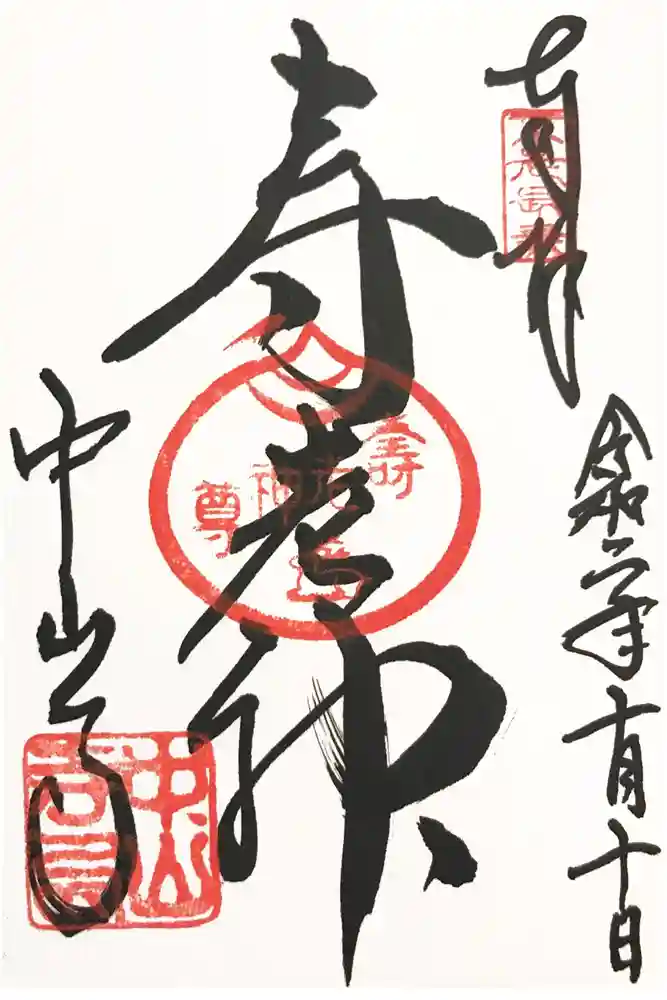 奉拝
令和二年十月十日
寿老神
壽老神尊
中山寺